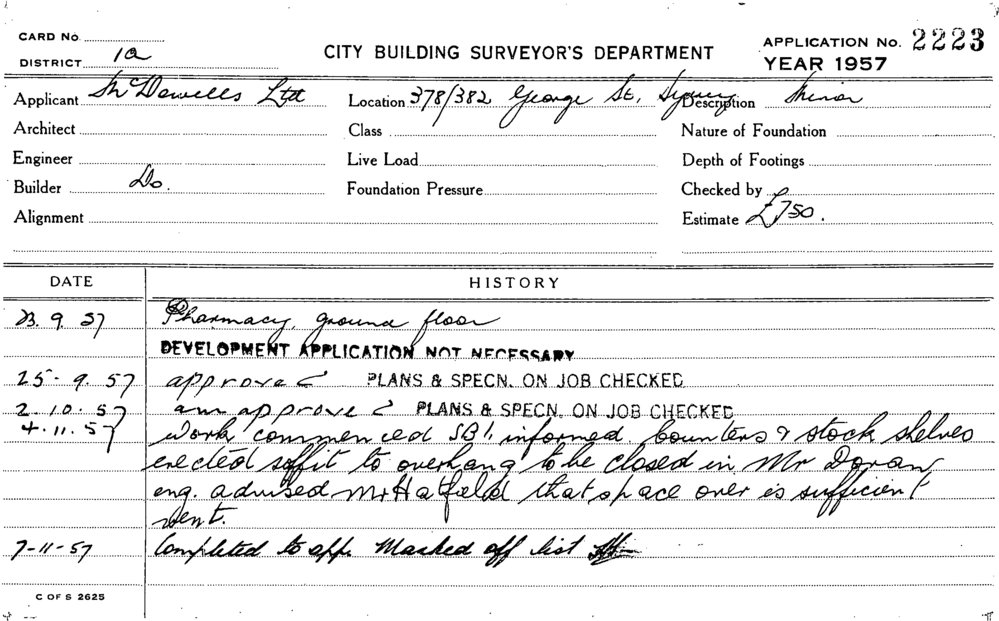 CARD No.
DISTRICT 1a
CITY BUILDING SURVEYOR'S DEPARTMENT
APPLICATION No. 2223
YEAR 1957
Applicant McDowells Ltd
Location 378/382 George St, Sydney
Description Minor
Architect
Class
Nature of Foundation
Engineer
Live Load
Depth of Footings
Builder Do.
Foundation Pressure
Checked by
Alignment
Estimate £750.
DATE HISTORY
23.9.57 Pharmacy, ground floor
DEVELOPMENT APPLICATION NOT NECESSARY
25-9.57 approved PLANS & SPECN. ON JOB CHECKED
2.10.57 am approved PLANS & SPECN. ON JOB CHECKED
4.11.57 work commenced informed counters & stock shelves
erected soffit to overhang to be closed in Mr Doran
eng. advised Mr Hatfield that space over is sufficient
vent.
7-11-57 Completed to app. Marked off list
C OF S 2625